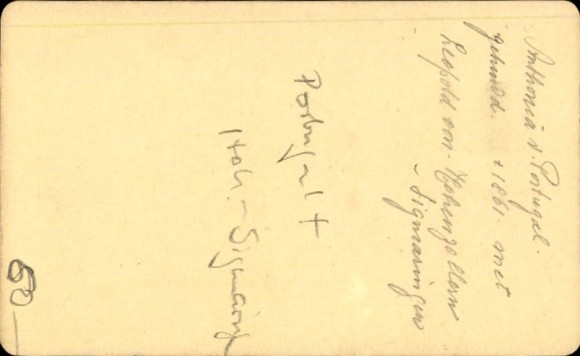 Anthonia v. Portugal.
gehuwd + 1861. met
Leopold von Hohenzollern
~ Sigmaringen
Portugal +
Hoh. - Sigmaring
50 —